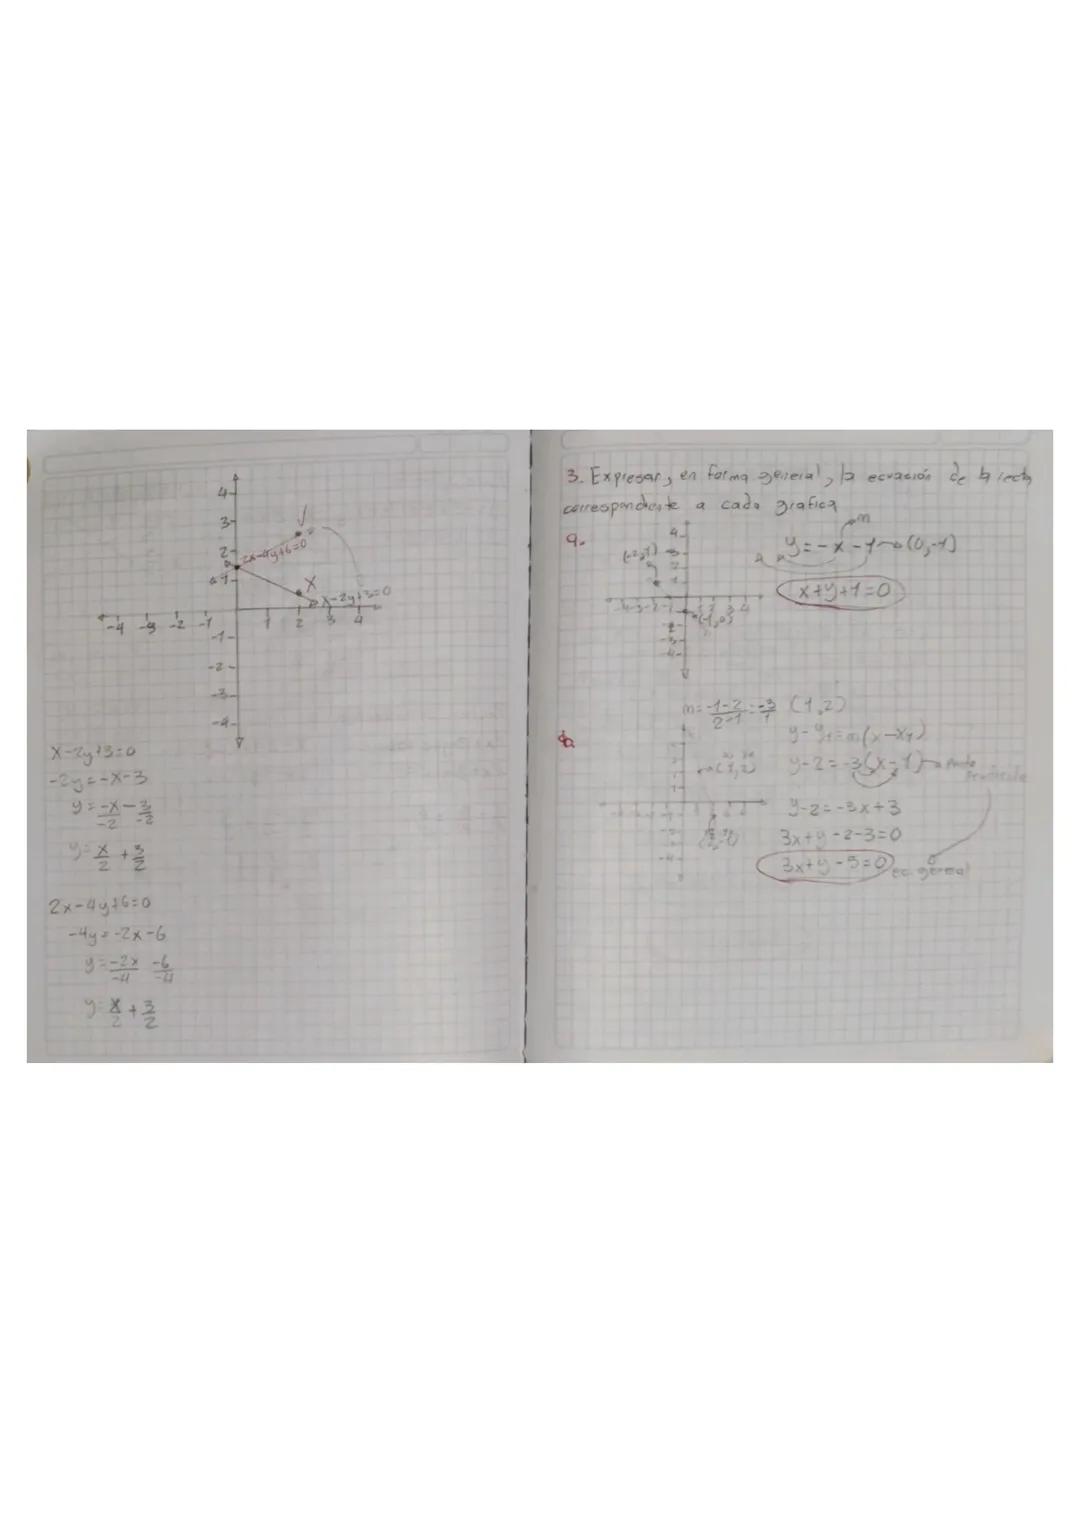 4
3
2
2x-4y+6=0
1
x-2y+3=0
-4 -3 -2 -1 1 2 3 4
-1
-2
-3
-4
x-2y+3=0
-2y=-x-3
y=-x/-2 -3/-2
y=x/2 +3/2
2x-4y+6=0
-4y=-2x-6
y=-2x/-4 -6/-4
y=x/2 +3/2
3. Expresar, en forma general, la ecuación de la recta
correspondiente a cada grafica
a.
m
y=-x-1→(0,-1)
x+y+1=0
4
3
2
1
-4-3-2-1 1 2 3 4
-2
-3
-4
b.
m=-1-2/2-1=-3/1 (1,2)
y-y1=m(x-x1)
y-2=-3(x-1)→ Punto Pendiente
(1,2)
y-2=-3x+3
3x+y-2-3=0
3x+y-5=0 ec. general